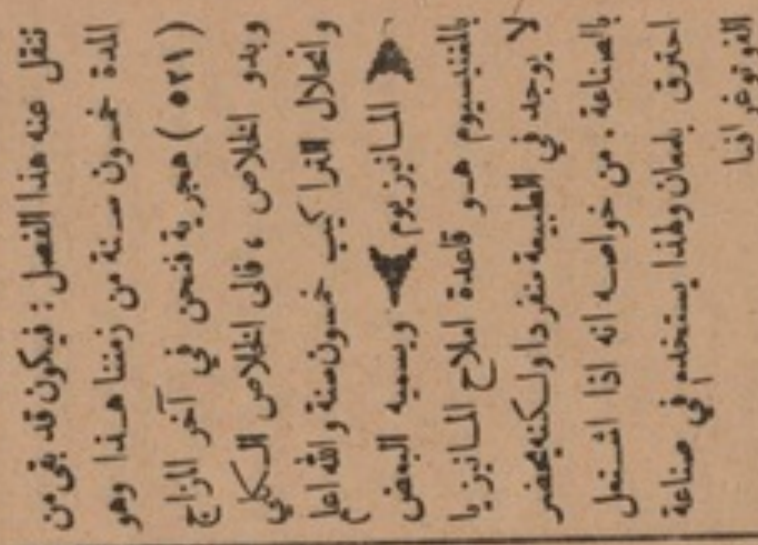 ننقل عنه هذا الفصل : فيكون قد بقى من
المدة خمسون سنة من زمننا هذا وهو
(٥٢١) هجرية فنحن في آخر المزاج
وبدو الخلاص ، فالى الخلاص الكلي
وانحلال التراكيب خمسون سنة والله اعلم
﴿ المانيزيوم ﴾ ويسميه البعض
بالمغنيسيوم هو قاعدة املاح المانيزيا
لا يوجد في الطبيعة منفردا ولكنه يحضر
بالصناعة . من خواصه انه اذا اشتعل
احترق بلمعان ولهذا يستخدم في صناعة
الفوتوغرافيا